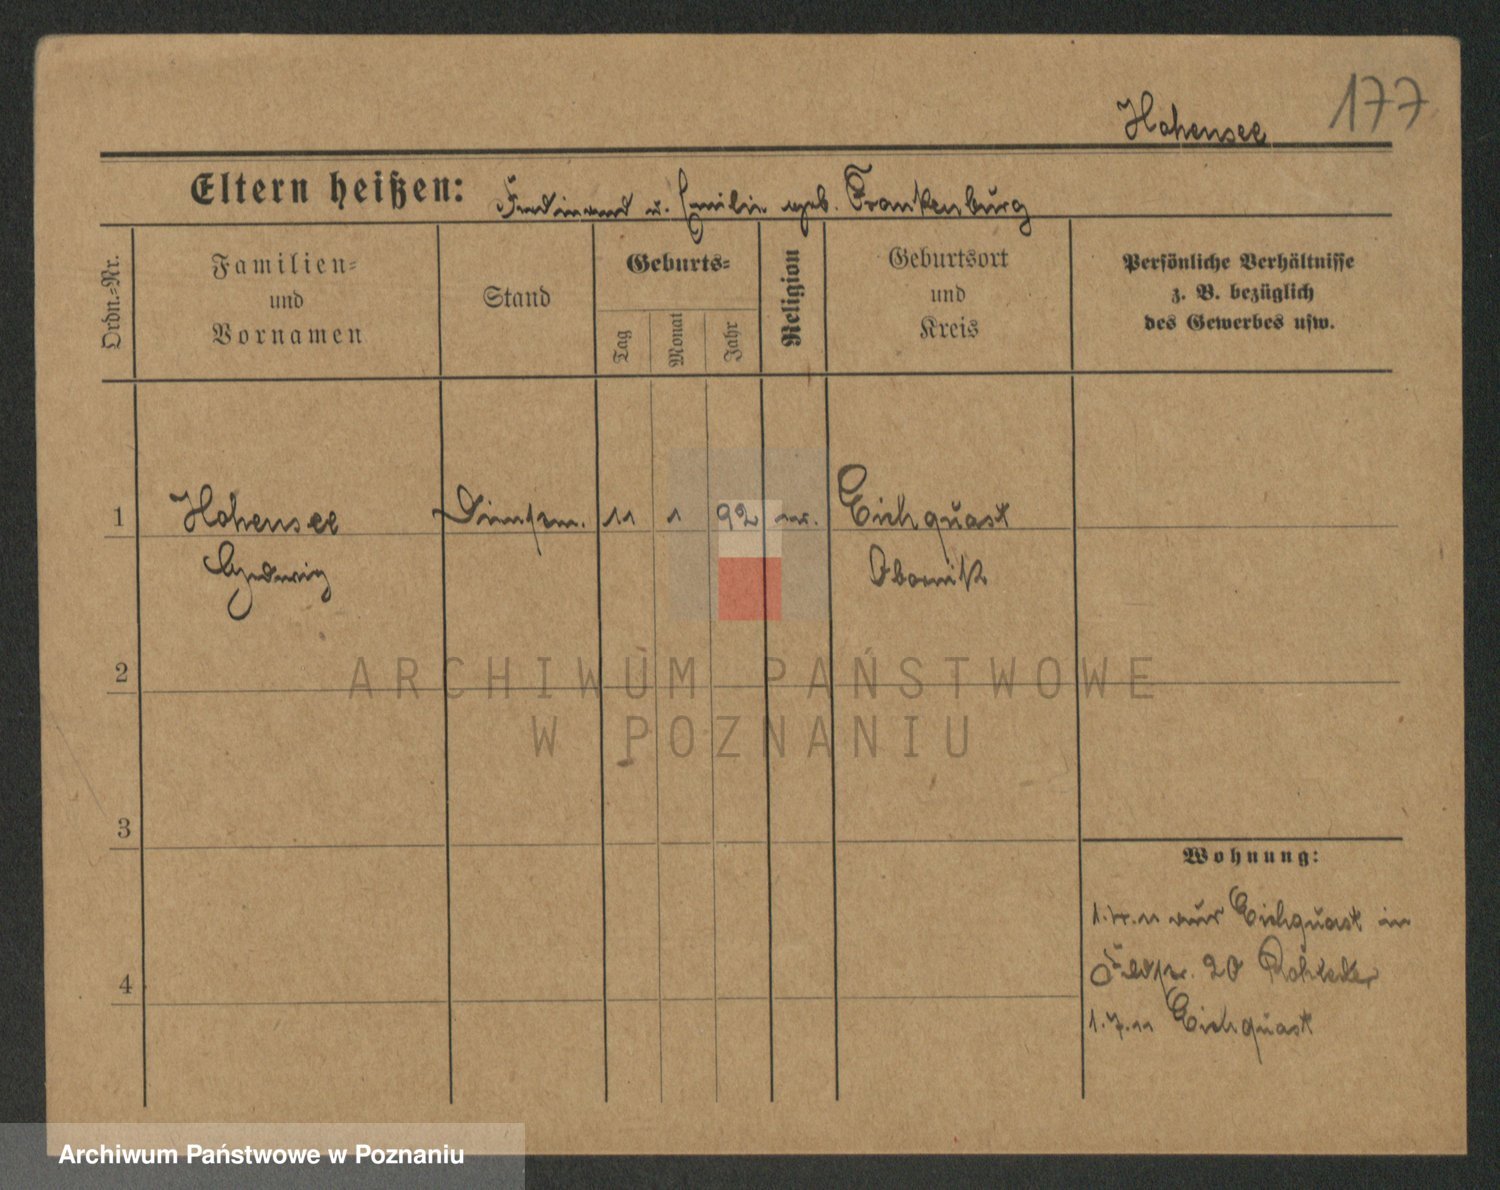 177
Hohensee
Eltern heißen: Ferdinand u. Emilie geb. Frankenburg
Ordn.-Nr.
Familien-
und
Vornamen
Stand
Geburts-
Tag
Monat
Jahr
Religion
Geburtsort
und
Kreis
Persönliche Verhältnisse
z. B. bezüglich
des Gewerbes usw.
1 Hohensee Dienstm. 11 1 92 ev. Eichquast
Hedwig Obornik
2
ARCHIWUM PAŃSTWOWE
W POZNANIU
3
Wohnung:
aus Eichquast in
20
4
1.7.11 Eichquast
Archiwum Państwowe w Poznaniu